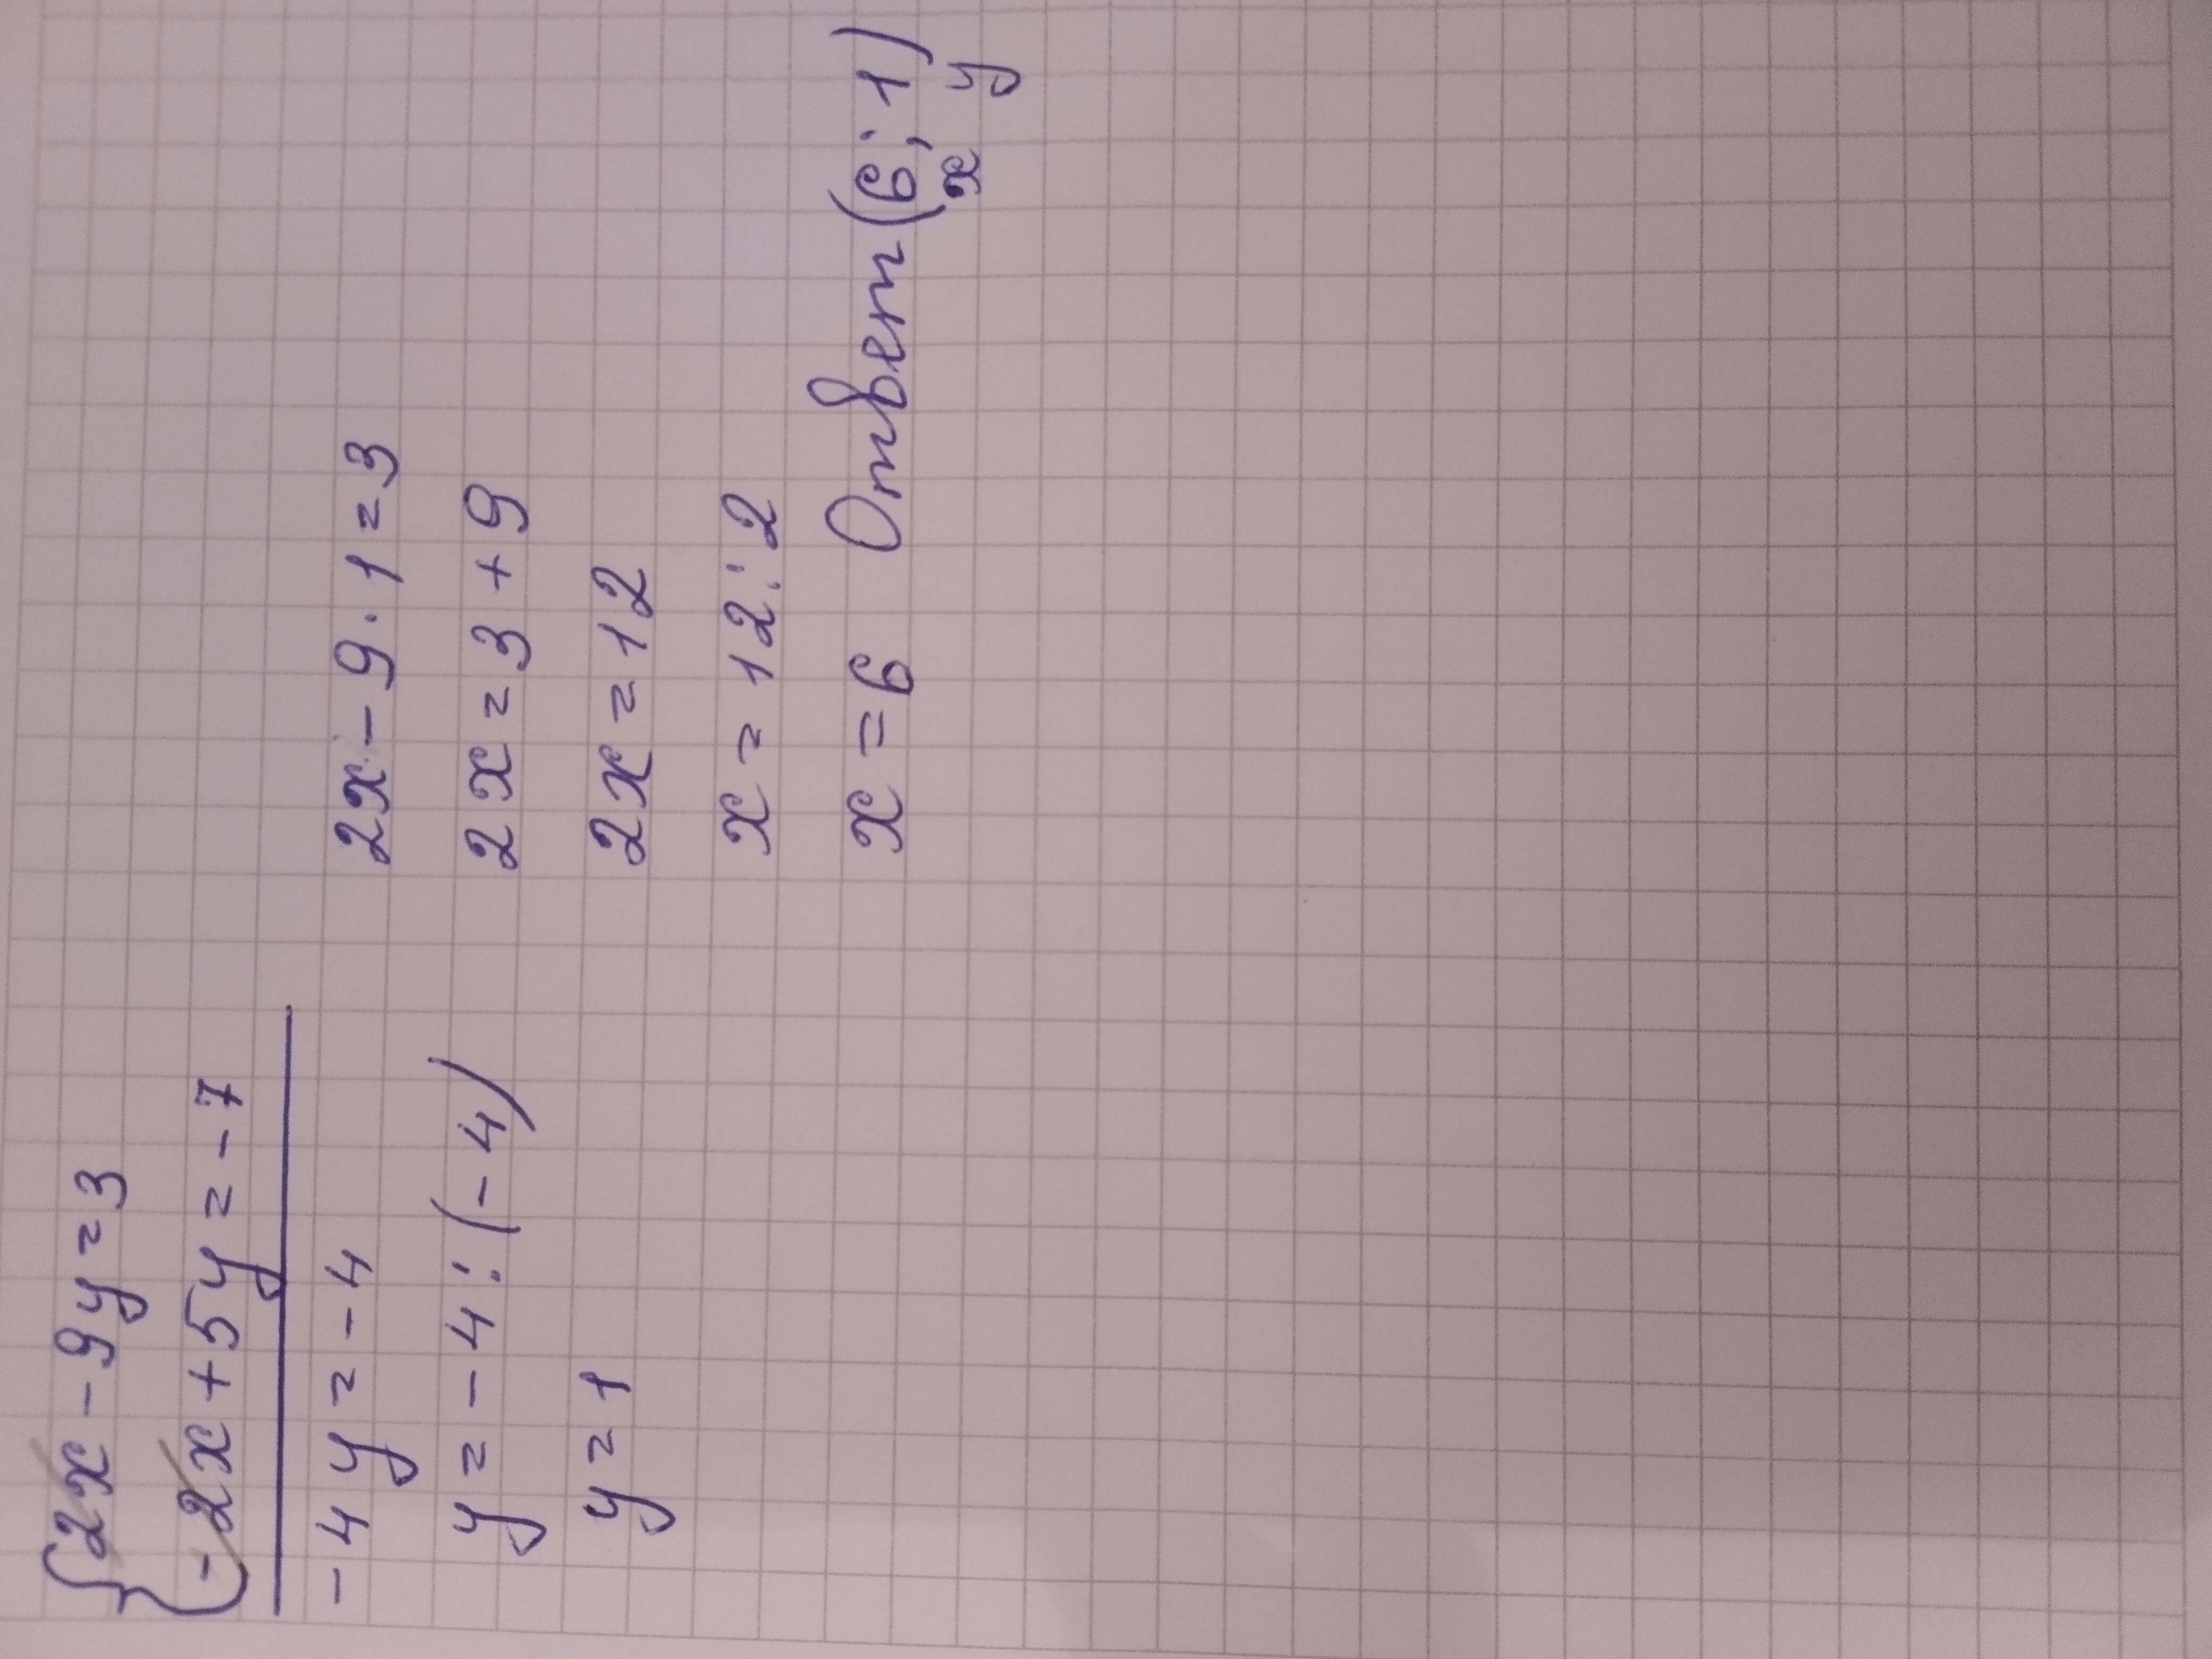 {2x - 9y = 3
-2x + 5y = -7
-4y = -4
y = -4 : (-4)
y = 1
2x - 9 · 1 = 3
2x = 3 + 9
2x = 12
x = 12 : 2
x = 6 Ответ (6; 1)
x y